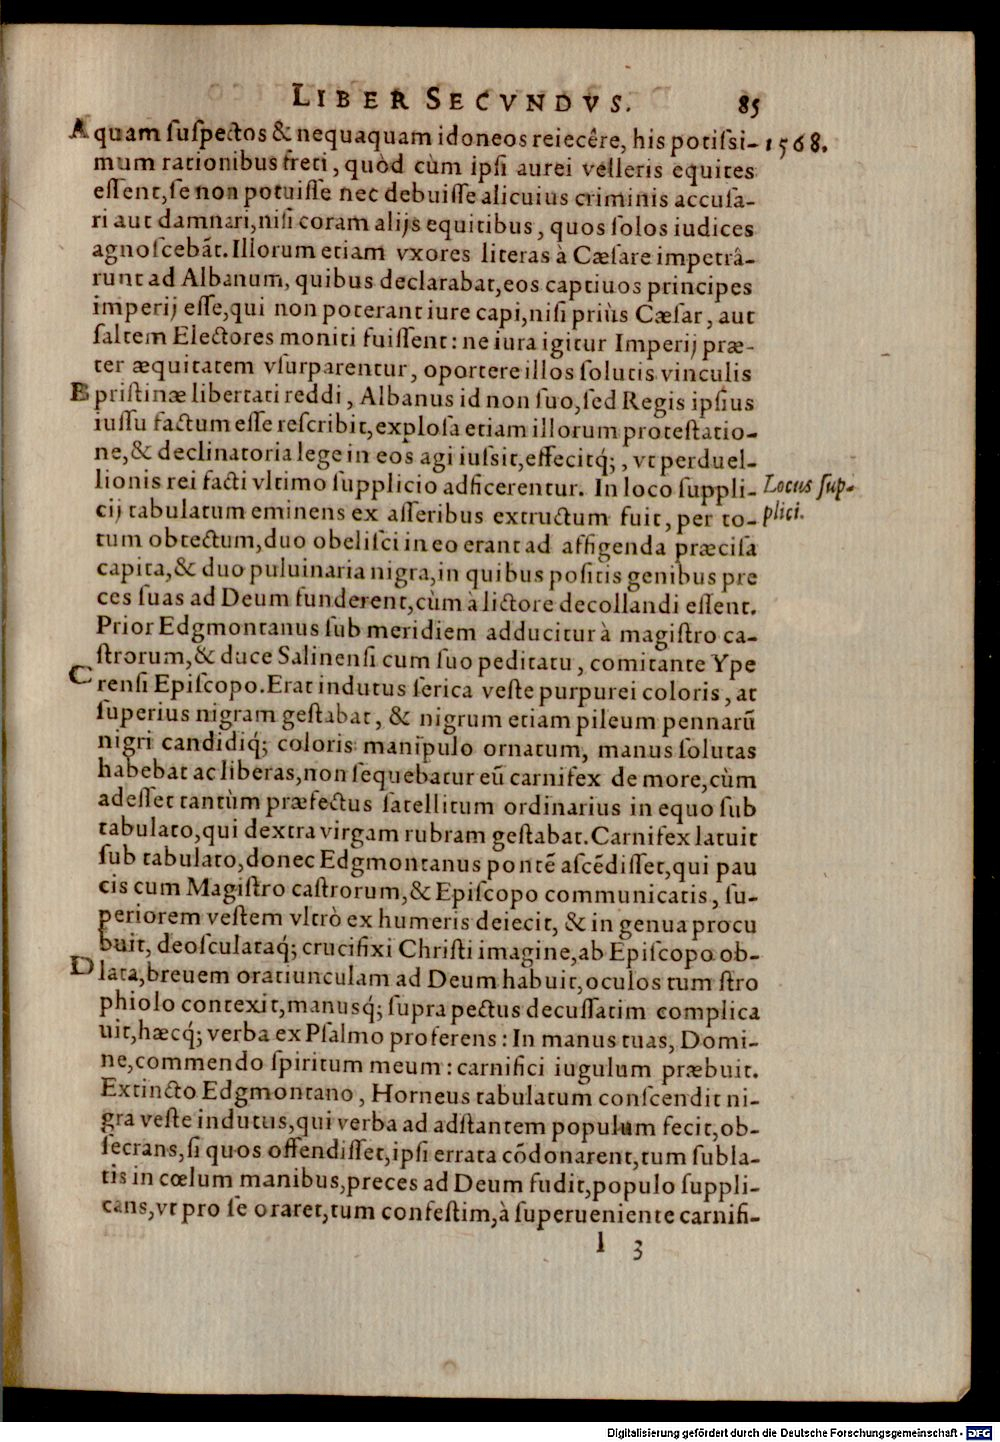 LIBER SECVNDVS. 85
A quam ſuſpectos & nequaquam idoneos reiecêre, his potiſsi- 1568.
mum rationibus freti, quòd cùm ipſi aurei velleris equites
eſſent, ſe non potuiſſe nec debuiſſe alicuius criminis accuſa-
ri aut damnari, niſi coram alijs equitibus, quos ſolos iudices
agnoſcebãt. Illorum etiam vxores literas à Cæſare impetrâ-
runt ad Albanum, quibus declarabat, eos captiuos principes
imperij eſſe, qui non poterant iure capi, niſi priùs Cæſar, aut
ſaltem Electores moniti fuiſſent: ne iura igitur Imperij præ-
ter æquitatem vſurparentur, oportere illos ſolutis vinculis
B priſtinæ libertati reddi, Albanus id non ſuo, ſed Regis ipſius
iuſſu factum eſſe reſcribit, exploſa etiam illorum proteſtatio-
ne, & declinatoria lege in eos agi iuſsit, effecitq́;, vt perduel-
lionis rei facti vltimo ſupplicio adficerentur. In loco ſuppli- Locus ſup-
cij tabulatum eminens ex aſſeribus extructum fuit, per to- plici.
tum obtectum, duo obeliſci in eo erant ad affigenda præciſa
capita, & duo puluinaria nigra, in quibus poſitis genibus pre
ces ſuas ad Deum funderent, cùm à lictore decollandi eſſent.
Prior Edgmontanus ſub meridiem adducitur à magiſtro ca-
ſtrorum, & duce Salinenſi cum ſuo peditatu, comitante Ype
C renſi Epiſcopo. Erat indutus ſerica veſte purpurei coloris, at
ſuperius nigram geſtabat, & nigrum etiam pileum pennarũ
nigri candidiq́; coloris manipulo ornatum, manus ſolutas
habebat ac liberas, non ſequebatur eũ carnifex de more, cùm
adeſſet tantùm præfectus ſatellitum ordinarius in equo ſub
tabulato, qui dextra virgam rubram geſtabat. Carnifex latuit
ſub tabulato, donec Edgmontanus pontẽ aſcẽdiſſet, qui pau
cis cum Magiſtro caſtrorum, & Epiſcopo communicatis, ſu-
periorem veſtem vltrò ex humeris deiecit, & in genua procu
buit, deoſculataq́; crucifixi Chriſti imagine, ab Epiſcopo ob-
D lata, breuem oratiunculam ad Deum habuit, oculos tum ſtro
phiolo contexit, manusq́; ſupra pectus decuſſatim complica
uit, hæcq́; verba ex Pſalmo proferens: In manus tuas, Domi-
ne, commendo ſpiritum meum: carnifici iugulum præbuit.
Extincto Edgmontano, Horneus tabulatum conſcendit ni-
gra veſte indutus, qui verba ad adſtantem populum fecit, ob-
ſecrans, ſi quos offendiſſet, ipſi errata cõdonarent, tum ſubla-
tis in cœlum manibus, preces ad Deum fudit, populo ſuppli-
cans, vt pro ſe oraret, tum confeſtim, à ſuperueniente carnifi-
l 3
Digitalisierung gefördert durch die Deutsche Forschungsgemeinschaft - DFG